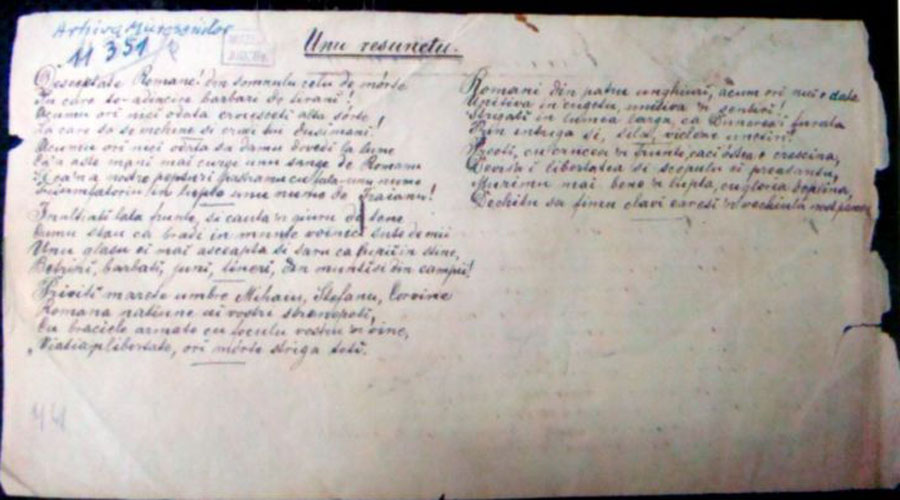 Arhiva Muresenilor
11 351
Unu resunetu.
Desceptate Romane! din somnulu celu de mórte
In care te-adancire barbari de tirani!
Acumu ori neci odata croiesceti alta sórte
La care sa se inchine si crudii tei dusimani!
Acumu ori neci odata sa damu dovedi la lume
Ca'n aste mani mai curge unu sange de Romanu
Si ca'n a nostre pepturi pastramu cu fala unu nume
Triumfatoriu in lupte unu nume de Traianu!
Inaltati lata frunte, si cauta'n giuru de tene
Cumu stau ca bradi in munte voinici sute de mii
Unu glasu ei mai ascépta si saru ca lupii in stine,
Betrini, barbati, juni, tineri, din munti si din campii!
Priviti marete umbre Mihaiu, Stefanu, Corvine
Romana natiune ai vostri stranepoti,
Cu braciele armate cu foculu vostru'n vine,
"Viatia'n libertate, ori mórte striga toti.
Romani din patru unghiuri, acum ori neci odata
Uniti-va in cugetu, uniti-va'n sentiri!
Strigati in lumea larga, ca Dunarea-i furata
Prin intriga si, sila, viclene uneltiri!
Preoti, cu crucea'n frunte, caci óstea e crescina,
Devisa-i libertatea si scopulu ei preasantu,
Murimu mai bene'n lupta, cu gloria deplina,
Decâtu sa fimu sclavi earesi'n vechiulu nost pamentu
44